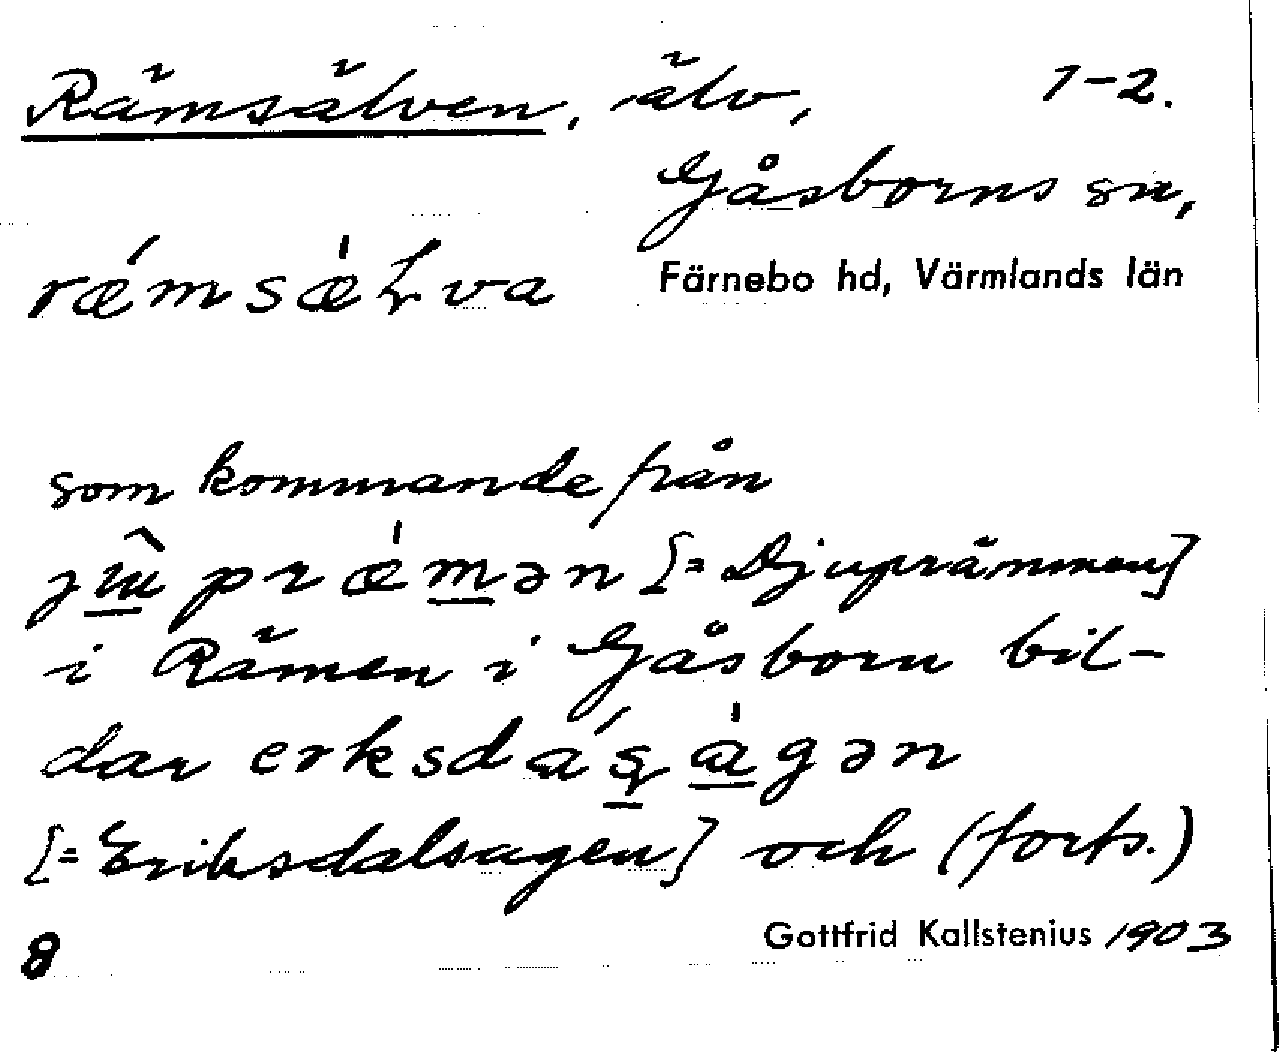 Rämsälven, älv, 1-2.
Gåsborns sn,
ræ´msæ̍ɫva Färnebo hd, Värmlands län
som kommande från
præ̍mən [= Djuprämmen]
i Rämen i Gåsborn bil-
dar erksdáʂa̍gən
[= Eriksdalsagen] och (forts.)
8 Gottfrid Kallstenius 1903